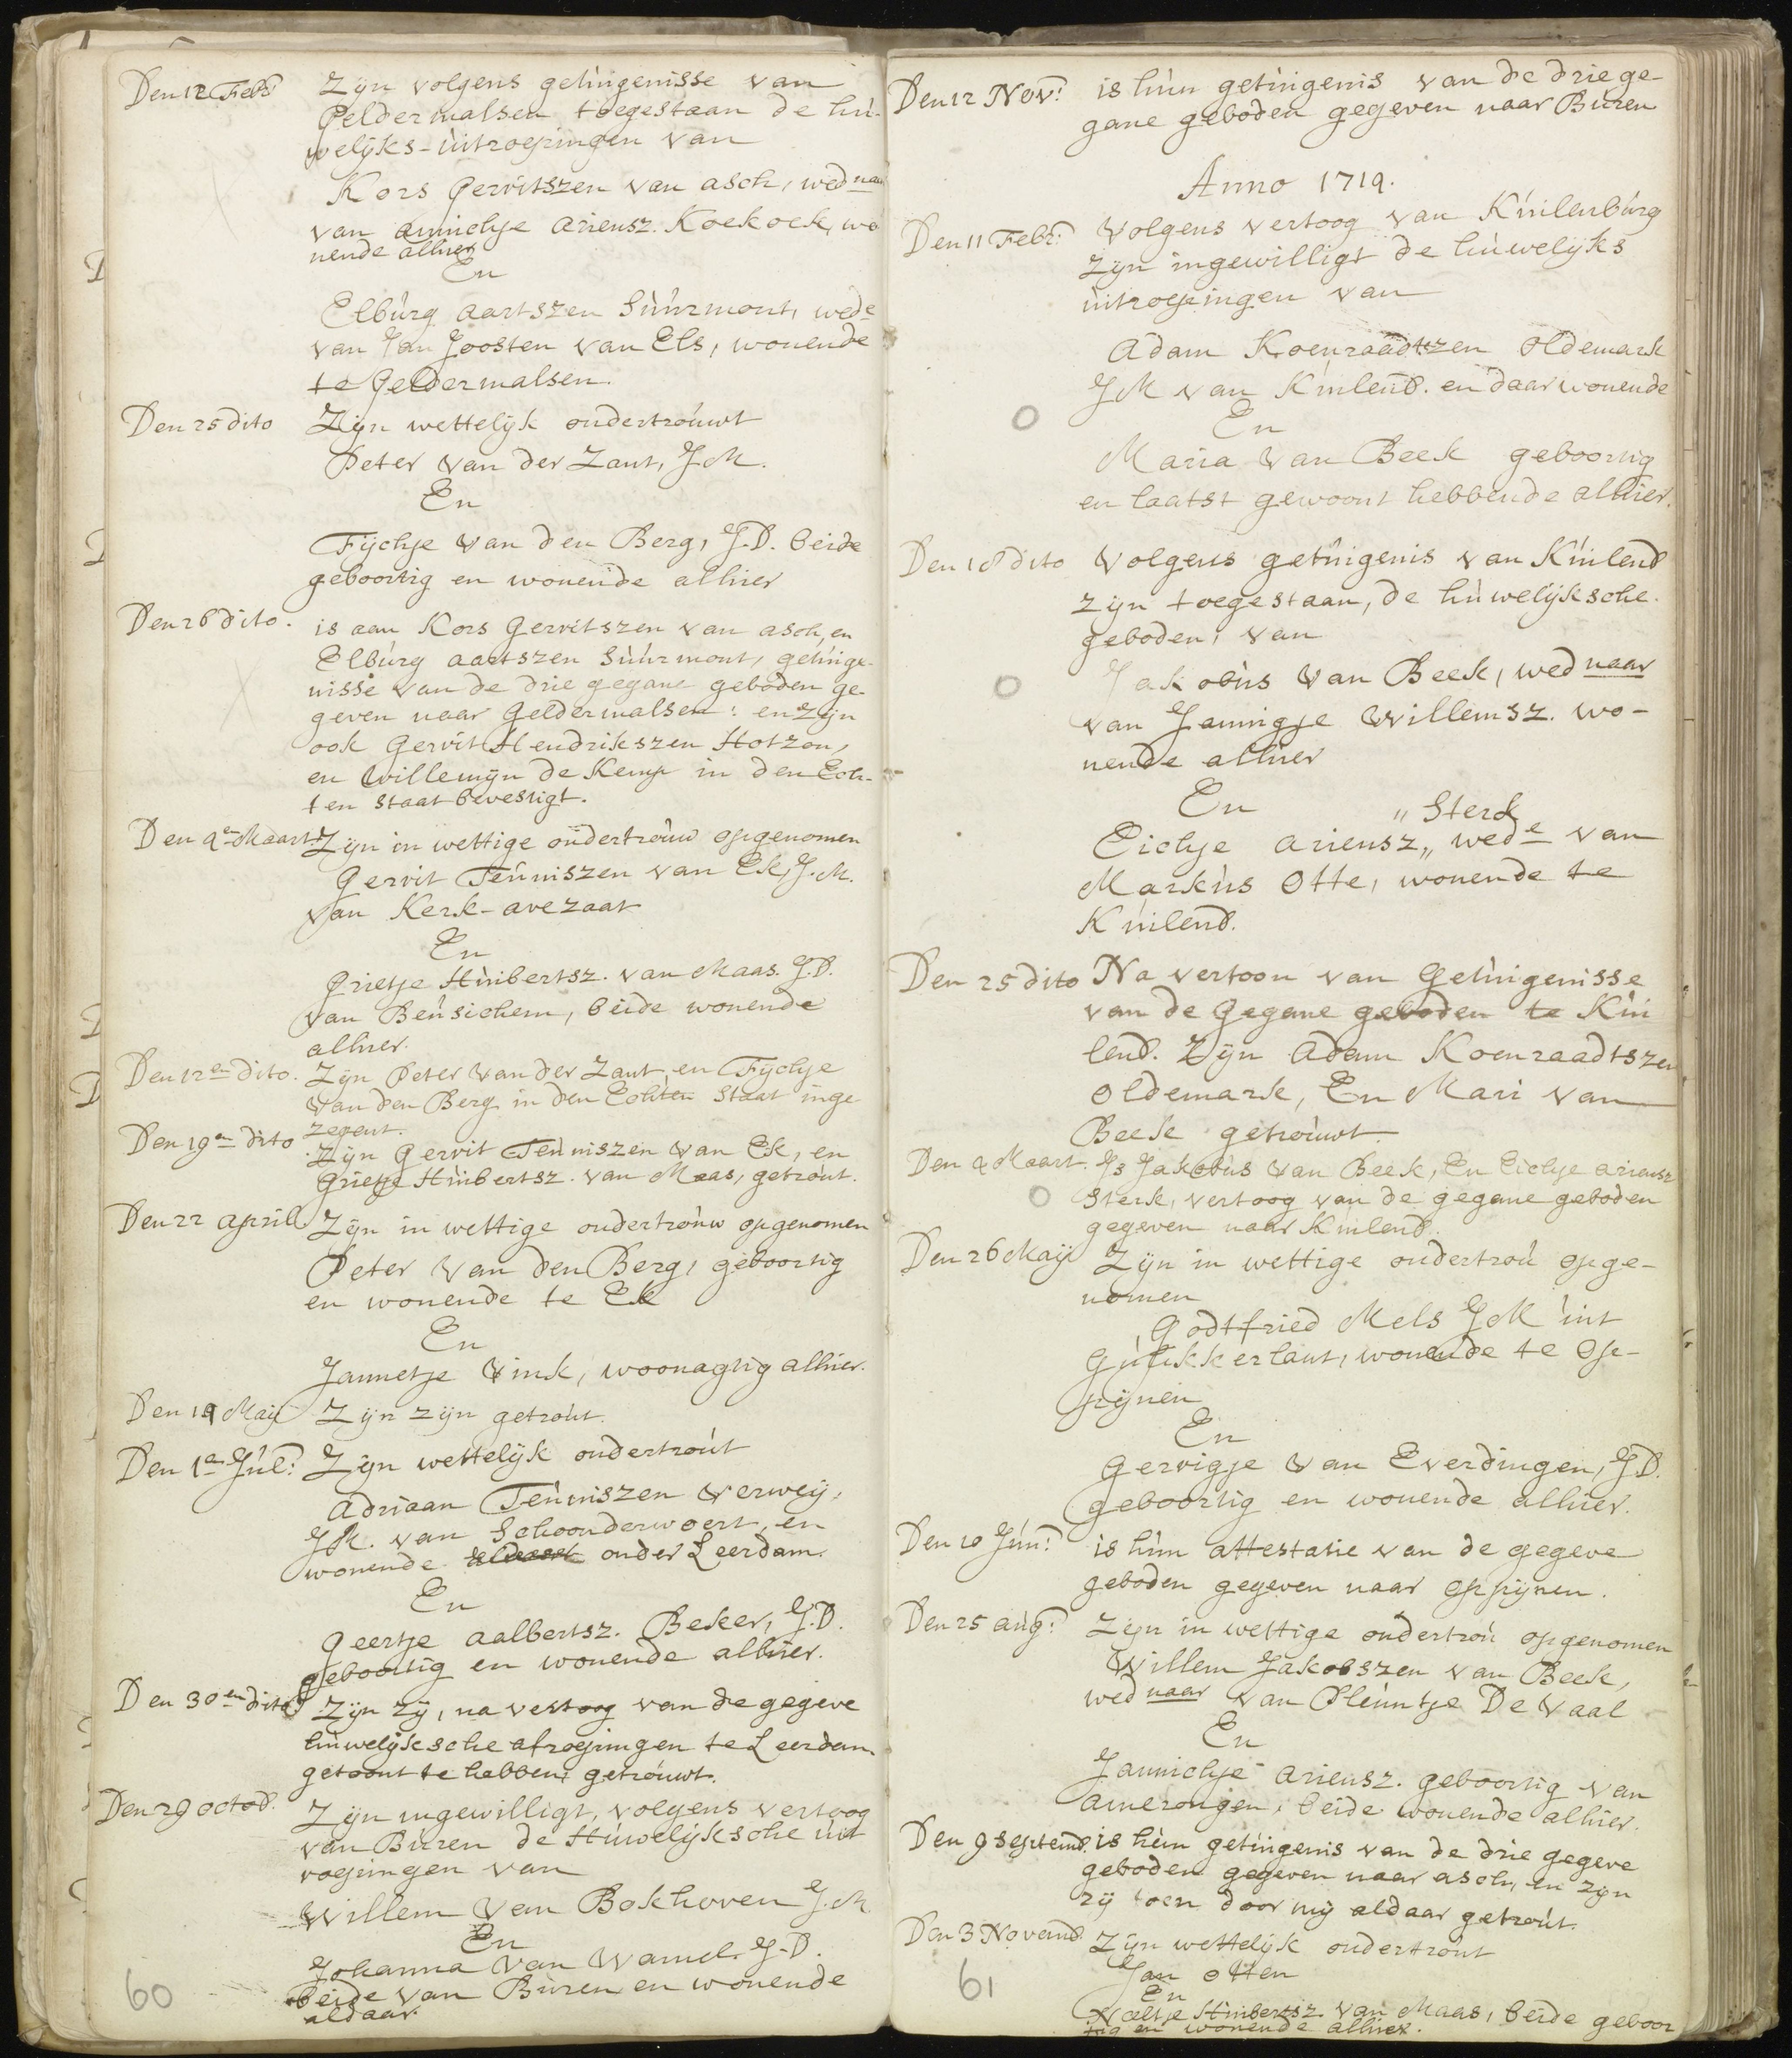 Den 12 Febr: Zijn volgens getuigenisse van
Geldermalsen toegestaan de hu-
welijks-uitroepingen van
Kors Gerritszen van asch, wednaar
van annichje ariensz. Koekoek, wo
nende alhier
En
Elburg aartszen Suurmont, wede
van Jan Joosten van Els, wonende
te Geldermalsen.
Den 25 dito Zijn wettelijk ondertrouwt
Peter van der Zant, J.M.
En
Fijchje van den Berg, J.D. beide
geboortig en wonende alhier
Den 26 dito. is aan Kors Gerritszen van asch, en
Elburg aartszen Suurmont, getuige-
nisse van de drie gegane geboden ge-
geven naar Geldermalsen: en zijn
ook Gerrit Hendrikszen Hotzon,
en Willemijn de Kemp in den Ech-
ten staat bevestigt.
Den 4en Maart Zijn in wettige ondertrouw opgenomen
Gerrit Teuniszen van Ek, J.M.
van Kerk-avezaat
En
Grietje Huibertsz. van Maas. J.D.
van Beusichem, beide wonende
alhier.
Den 12en dito. Zijn Peter van der Zant en Fijchje
van den Berg in den Echten Staat inge
zegent.
Den 19en dito Zijn Gerrit Teuniszen van Ek, en
Grietje Huibertsz. van Maas, getrout.
Den 22 april Zijn in wettige ondertrouw opgenomen
Peter van den Berg, geboortig
en wonende te Ek
En
Jannetje Vink, woonagtig alhier.
Den 19 Maij Zijn zijn getrout.
Den 1en Jul: Zijn wettelijk ondertrout
Adriaan Teuniszen Verweij,
J.M. van Schoonderwoert, en
wonende onder Leerdam.
En
Geertje aalbertsz. Beker, J.D.
geboortig en wonende alhier.
Den 30en dito Zijn zij, na vertoog van de gegeve
huwelijksche afroepingen te Leerdam
getoont te hebben, getrouwt.
Den 29 octob. Zijn ingewilligt, volgens vertoog
van Buren de Huwelijksche uit
roepingen van
Willem van Bokhoven J.M
En
Johanna van Wamel. J.D.
beide van Buren en wonende
aldaar.
60
Den 12 Nov: is hun getuigenis van de drie ge-
gane geboden gegeven naar Buren
Anno 1719.
Den 11 Febr: Volgens vertoog van Kuilenburg
zijn ingewilligt de huwelijks
uitroepingen van
Adam Koenraadtszen Oldemark
JM van Kuilenb. en daar wonende
En
Maria van Beek geboortig
en laatst gewoont hebbende alhier.
Den 18 dito Volgens getuigenis van Kuilenb
zijn toegestaan, de huwelijksche
geboden, van
Jakobus van Beek, wednaar
van Jannigje Willemsz. wo-
nende alhier
En
„ Sterk
Eichje ariensz„ wede van
Markus Otte, wonende te
Kuilenb.
Den 25 dito Na vertoon van Getuigenisse
van de Gegane geboden te Kui
lenb. Zijn Adam Koenraadtszen
Oldemark, En Mari van
Beek getrouwt.
Den 4 Maart. Is Jakobus van Beek, En Eichje ariensz
Sterk, vertoog van de gegane geboden
gegeven naar Kuilenb.
Den 26 Maij Zijn in wettige ondertrou opge-
nomen
Godtfried Mels JM uit
Gulikkerlant, wonende te Op-
pijnen
En
Gerrigje van Everdingen, J.D.
geboortig en wonende alhier.
Den 10 Jun: is hun attestatie van de gegeve
geboden gegeven naar Oppijnen.
Den 25 aug: Zijn in wettige ondertrou opgenomen
Willem Jakobszen van Beek,
wednaar van Pleuntje De Vaal
En
Jannichje ariensz. geboortig van
amerongen, beide wonende alhier.
Den 9 septemb. is hun getuigenis van de drie gegeve
geboden gegeven naar asch, en zijn
zij toen door mij aldaar getrout.
Den 3 Novemb. Zijn wettelijk ondertrout
Jan Otten
En
Neeltje Huibertsz van Maas, beide geboor
tig en wonende alhier.
61